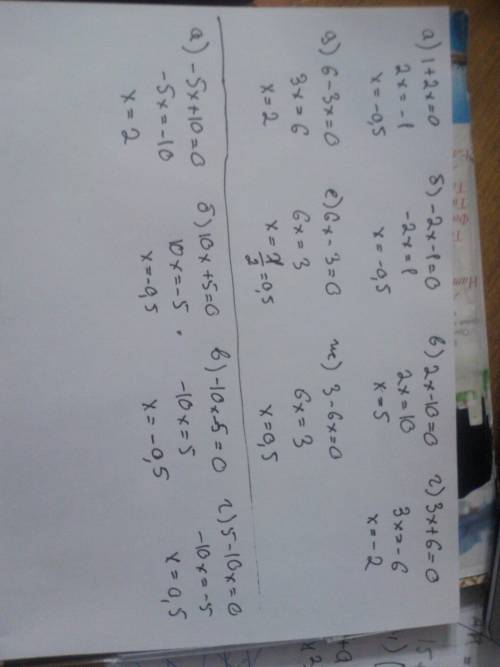 а) 1+2x=0
2x=-1
x=-0,5
б) -2x-1=0
-2x=1
x=-0,5
в) 2x-10=0
2x=10
x=5
г) 3x+6=0
3x=-6
x=-2
д) 6-3x=0
3x=6
x=2
е) 6x-3=0
6x=3
x=1/2=0,5
ж) 3-6x=0
6x=3
x=0,5
а) -5x+10=0
-5x=-10
x=2
б) 10x+5=0
10x=-5
x=-0,5
в) -10x-5=0
-10x=5
x=-0,5
г) 5-10x=0
-10x=-5
x=0,5